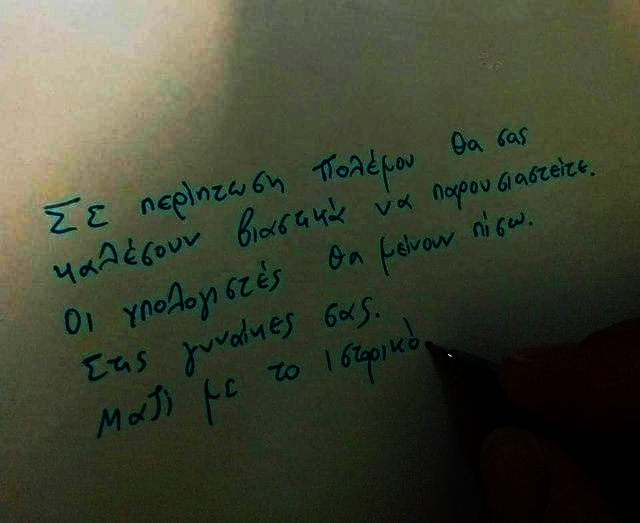 Σε περίπτωση πολέμου θα σας
καλέσουν βιαστικά να παρουσιαστείτε.
Οι υπολογιστές θα μείνουν πίσω.
Στις γυναίκες σας.
Μαζί με το ιστορικό.